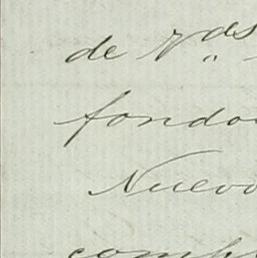 de Vds
fondo
Nuevo
comp